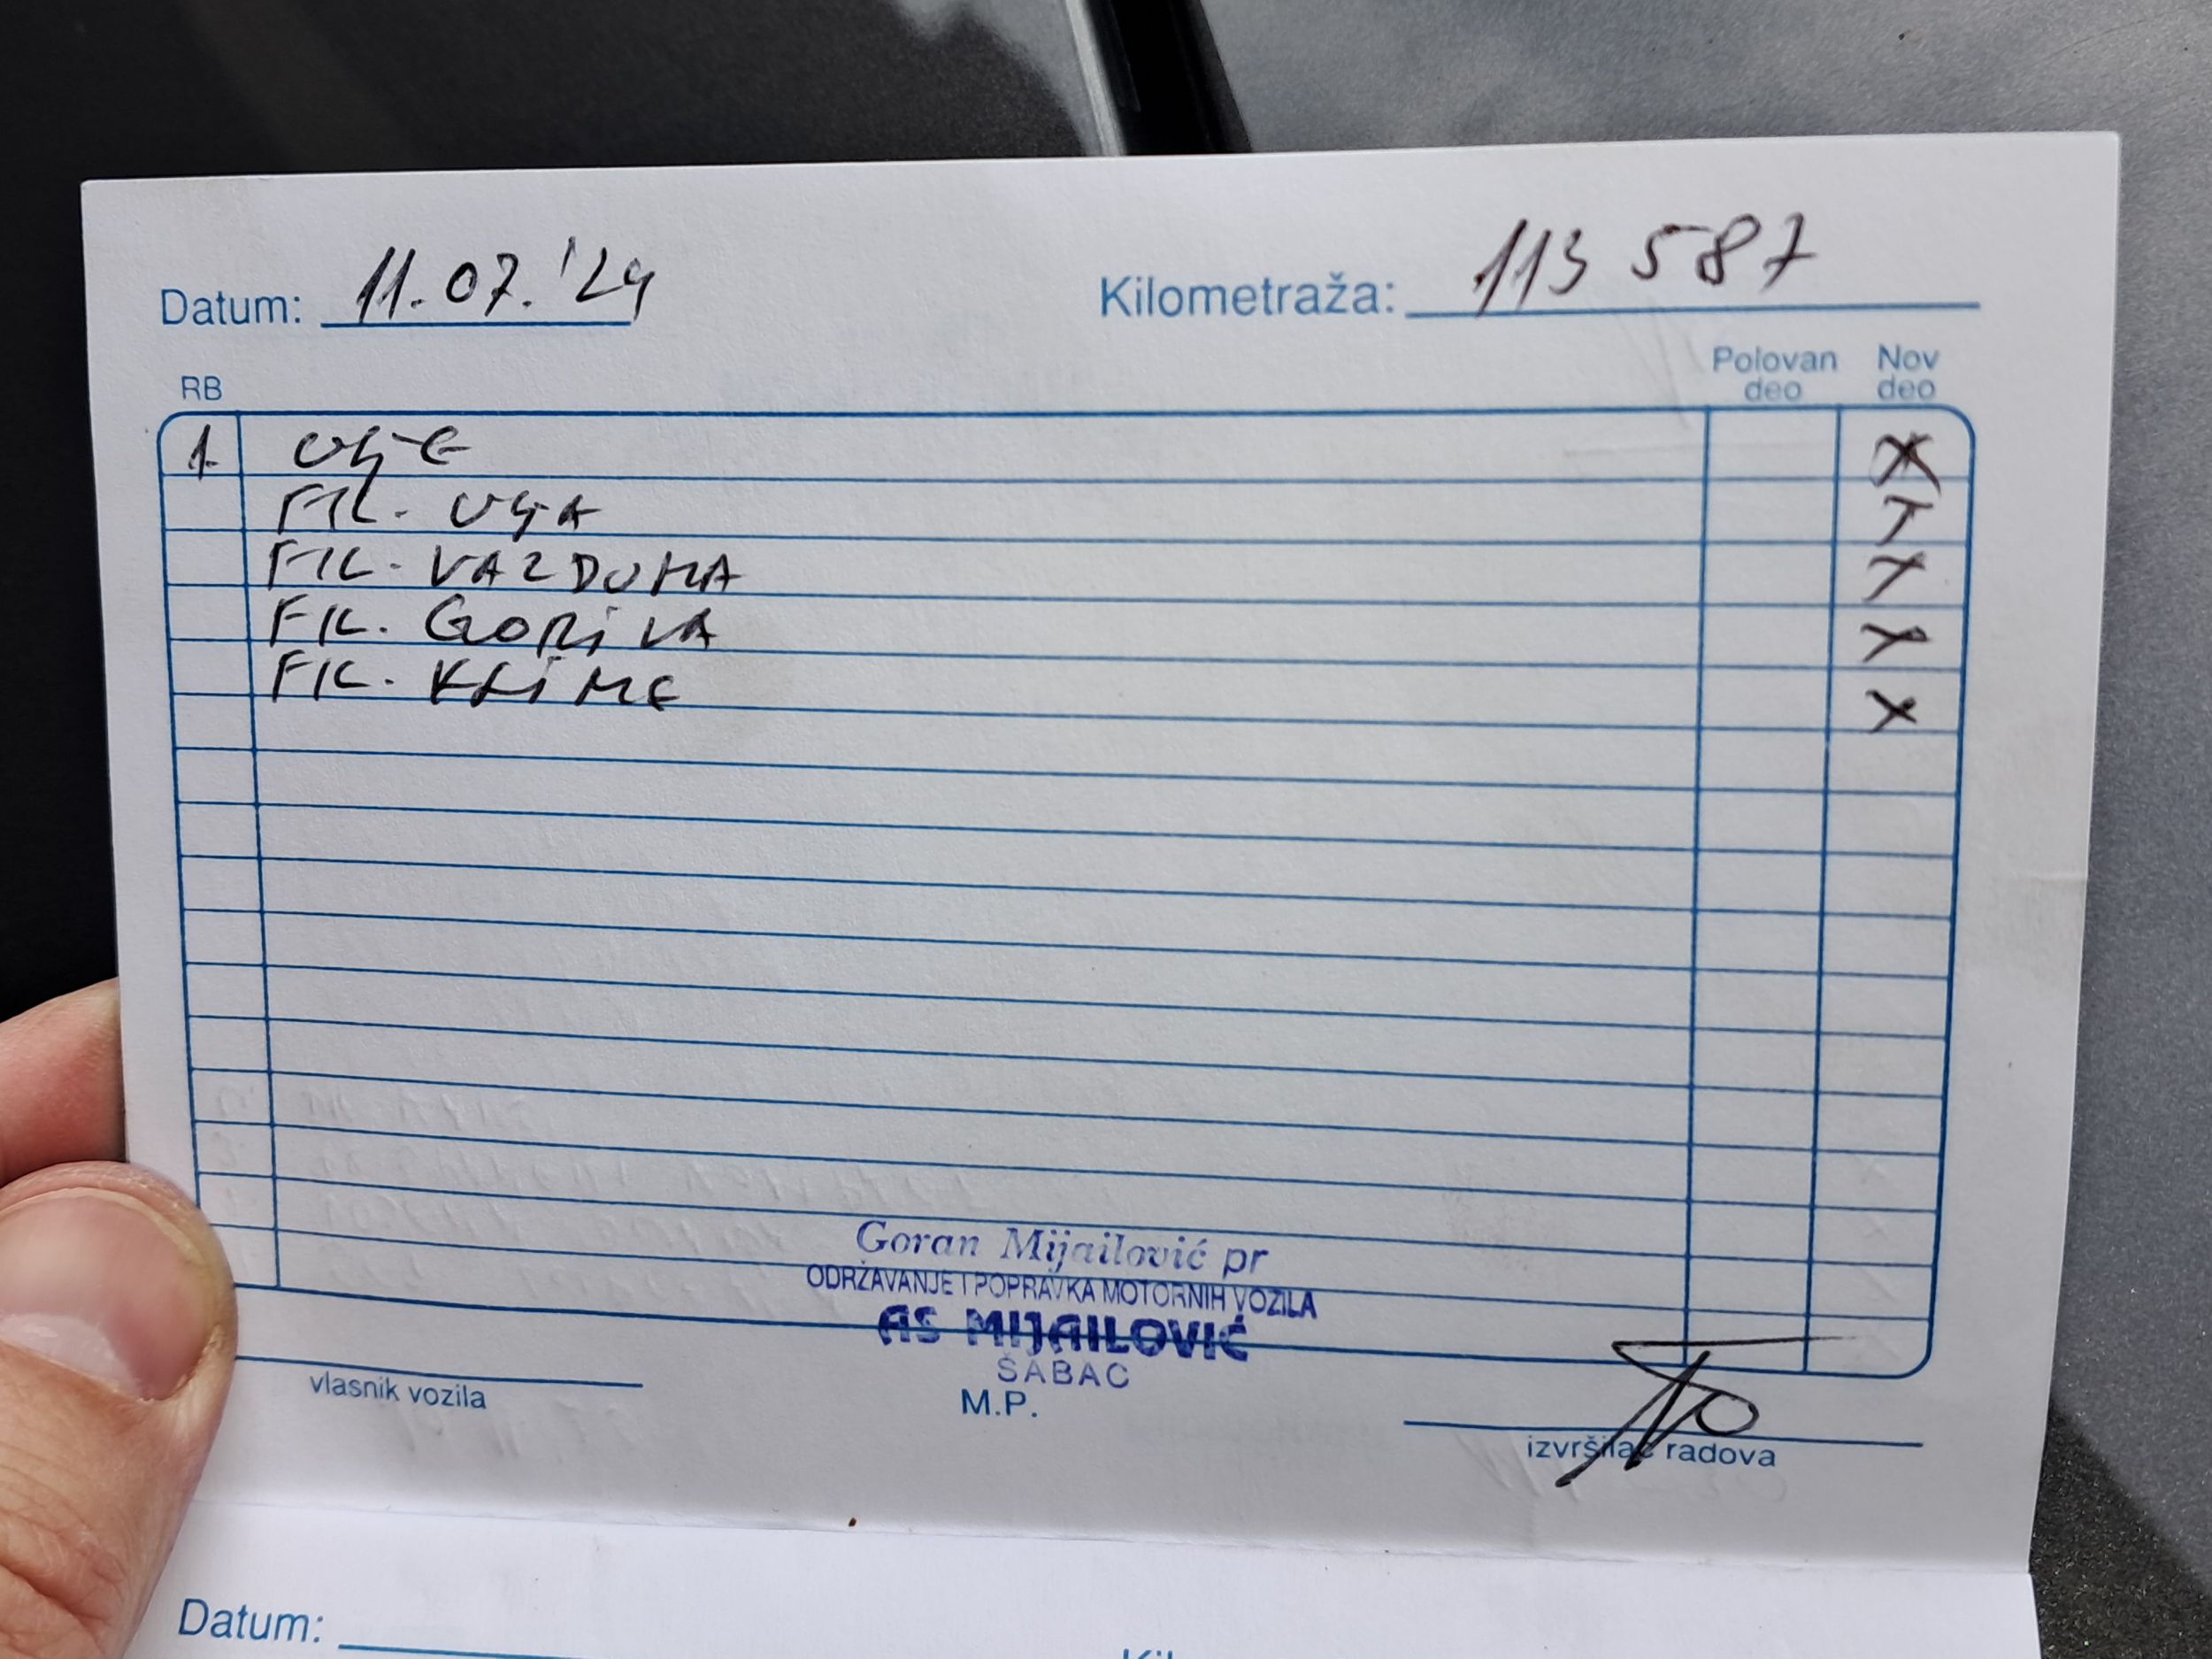 Datum: 11.07.'24 Kilometraža: 113 587
RB Polovan deo Nov deo
1. ULJE X
FIL. ULJA X
FIL. VAZDUHA X
FIL. GORIVA X
FIL. KLIME X
Goran Mijailović pr
ODRŽAVANJE I POPRAVKA MOTORNIH VOZILA
AS MIJAILOVIĆ
ŠABAC
M.P.
vlasnik vozila
izvršilac radova
Datum: